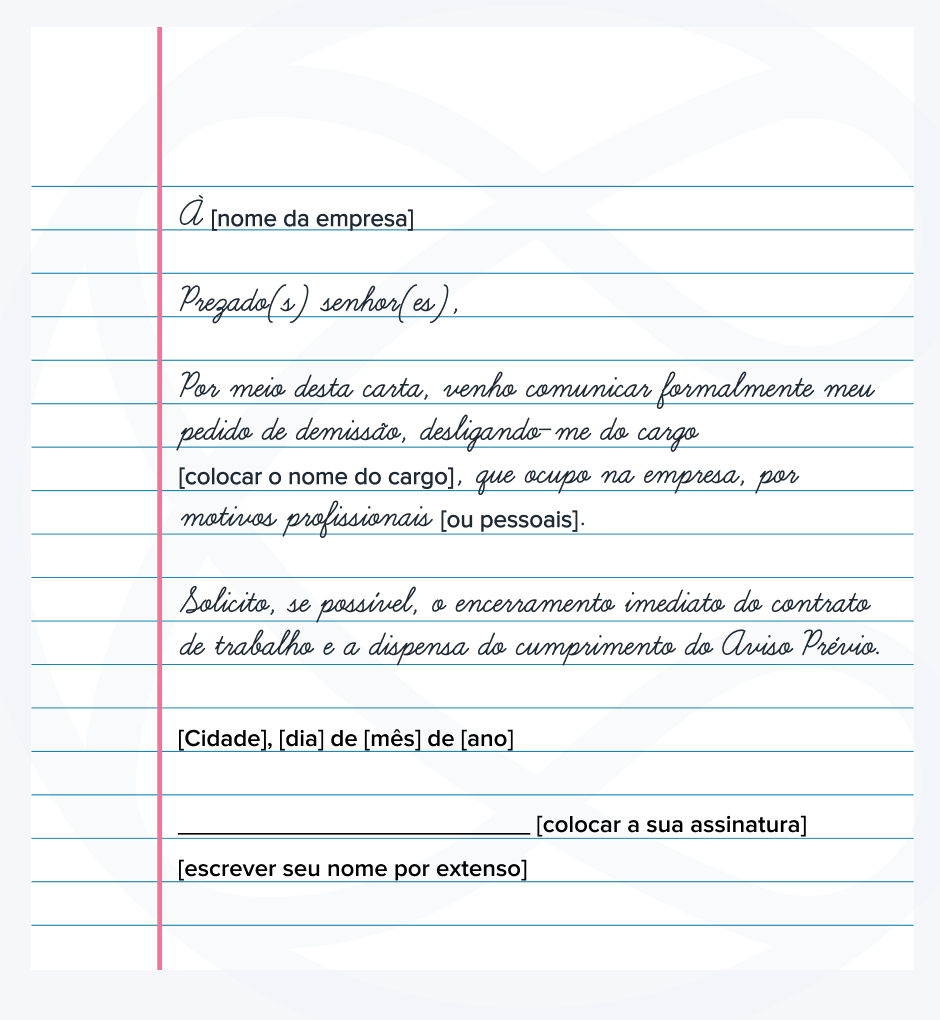 À [nome da empresa]
Prezado(s) senhor(es),
Por meio desta carta, venho comunicar formalmente meu
pedido de demissão, desligando-me do cargo
[colocar o nome do cargo], que ocupo na empresa, por
motivos profissionais [ou pessoais].
Solicito, se possível, o encerramento imediato do contrato
de trabalho e a dispensa do cumprimento do Aviso Prévio.
[Cidade], [dia] de [mês] de [ano]
______________________________ [colocar a sua assinatura]
[escrever seu nome por extenso]